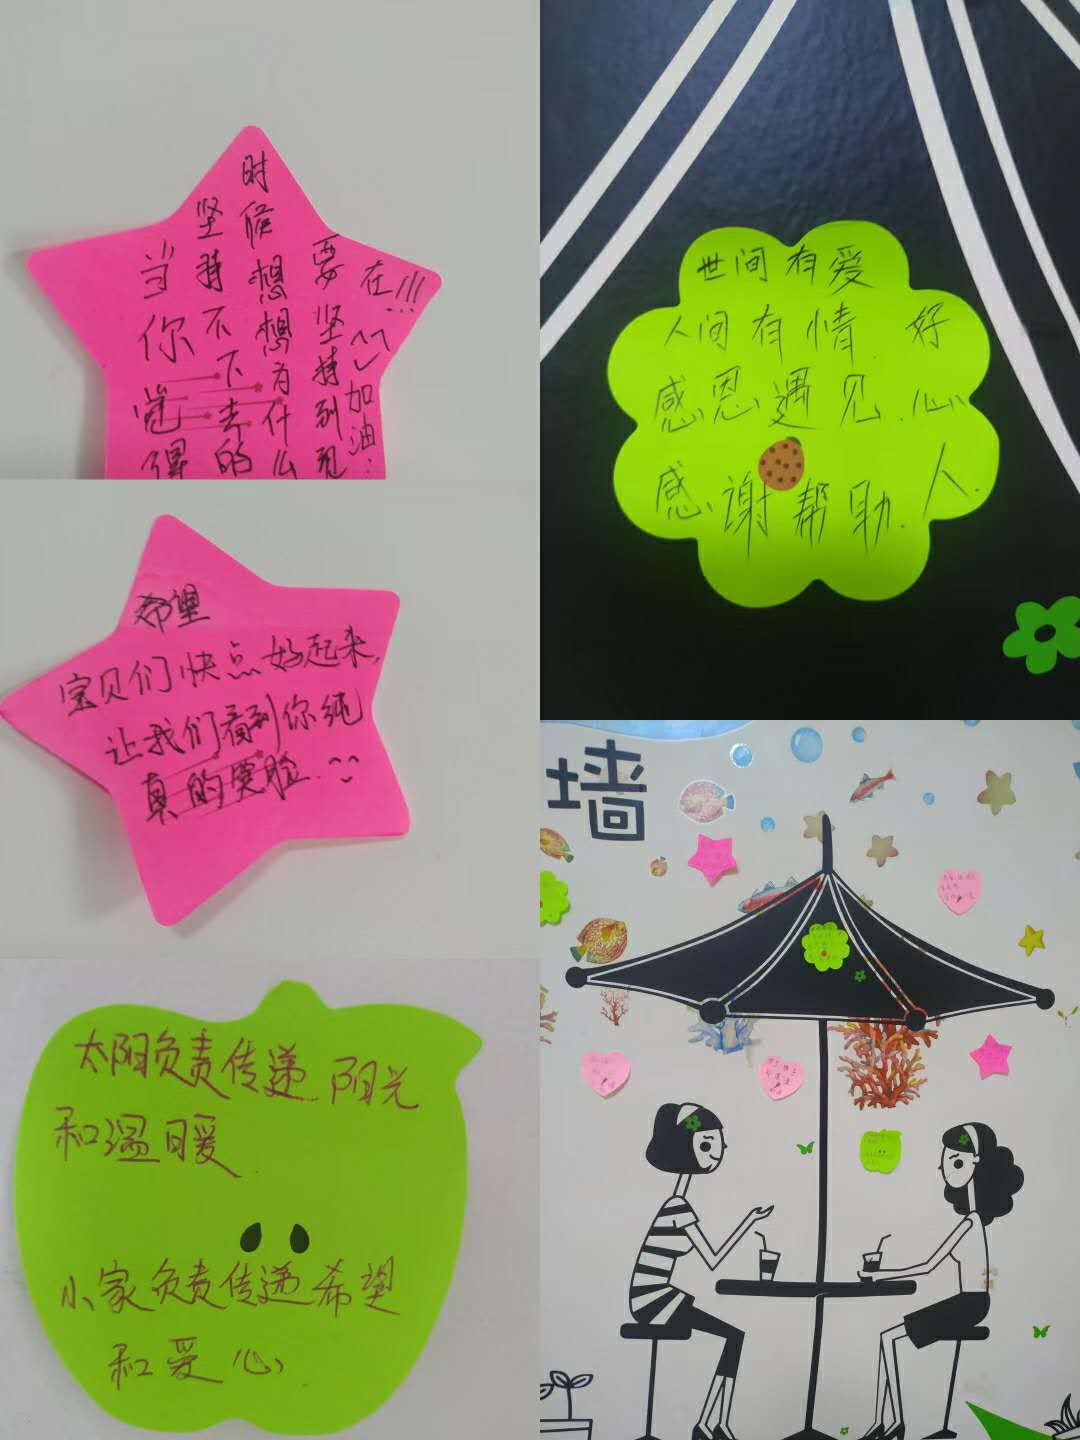 当你觉得
坚持不下去的
时候想想为什么
要坚持到现
在!!!
加油
希望
宝贝们快点好起来,
让我们看到你纯
真的笑脸.
太阳负责传递阳光
和温暖.
小家负责传递希望
和爱心
世间有爱
人间有情.
感恩遇见.
感谢帮助.
好心人.
墙